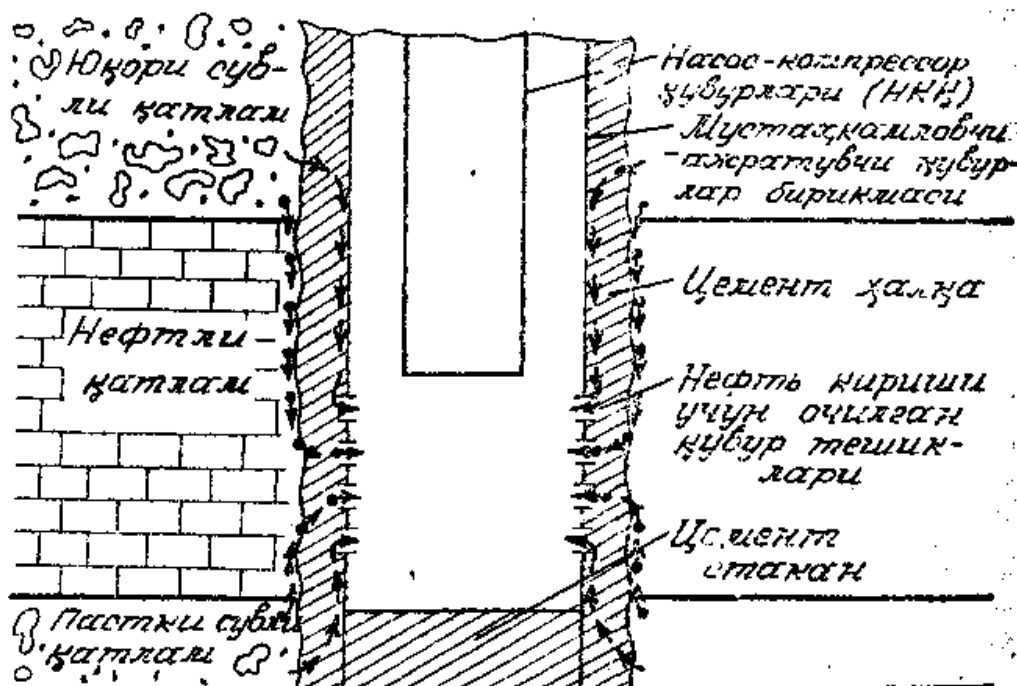 Юқори сув-
ли қатлам
Нефтли-
қатлам
Пастки сувли
қатлам
Насос-компрессор
қувурлари (НКҚ)
Мустаҳкамловчи-
-ажратувчи қувур-
лар бирикмаси
Цемент ҳалқа
Нефть кириши
учун очилган
қувур тешик-
лари
Цемент
стакан